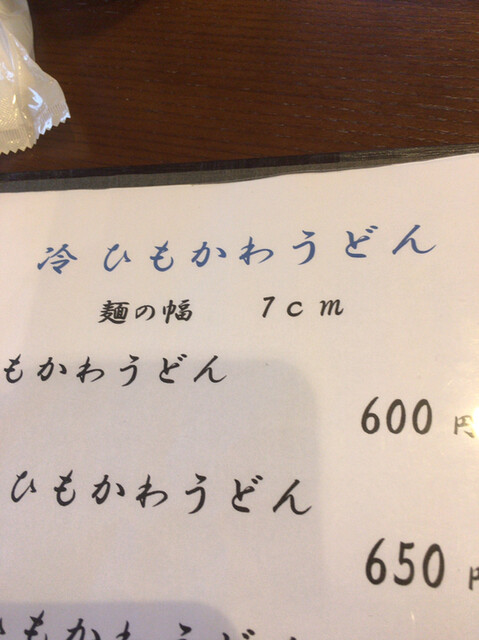 冷 ひもかわうどん
麺の幅 7cm
もかわうどん
600円
ひもかわうどん
650円
ひもかわうど